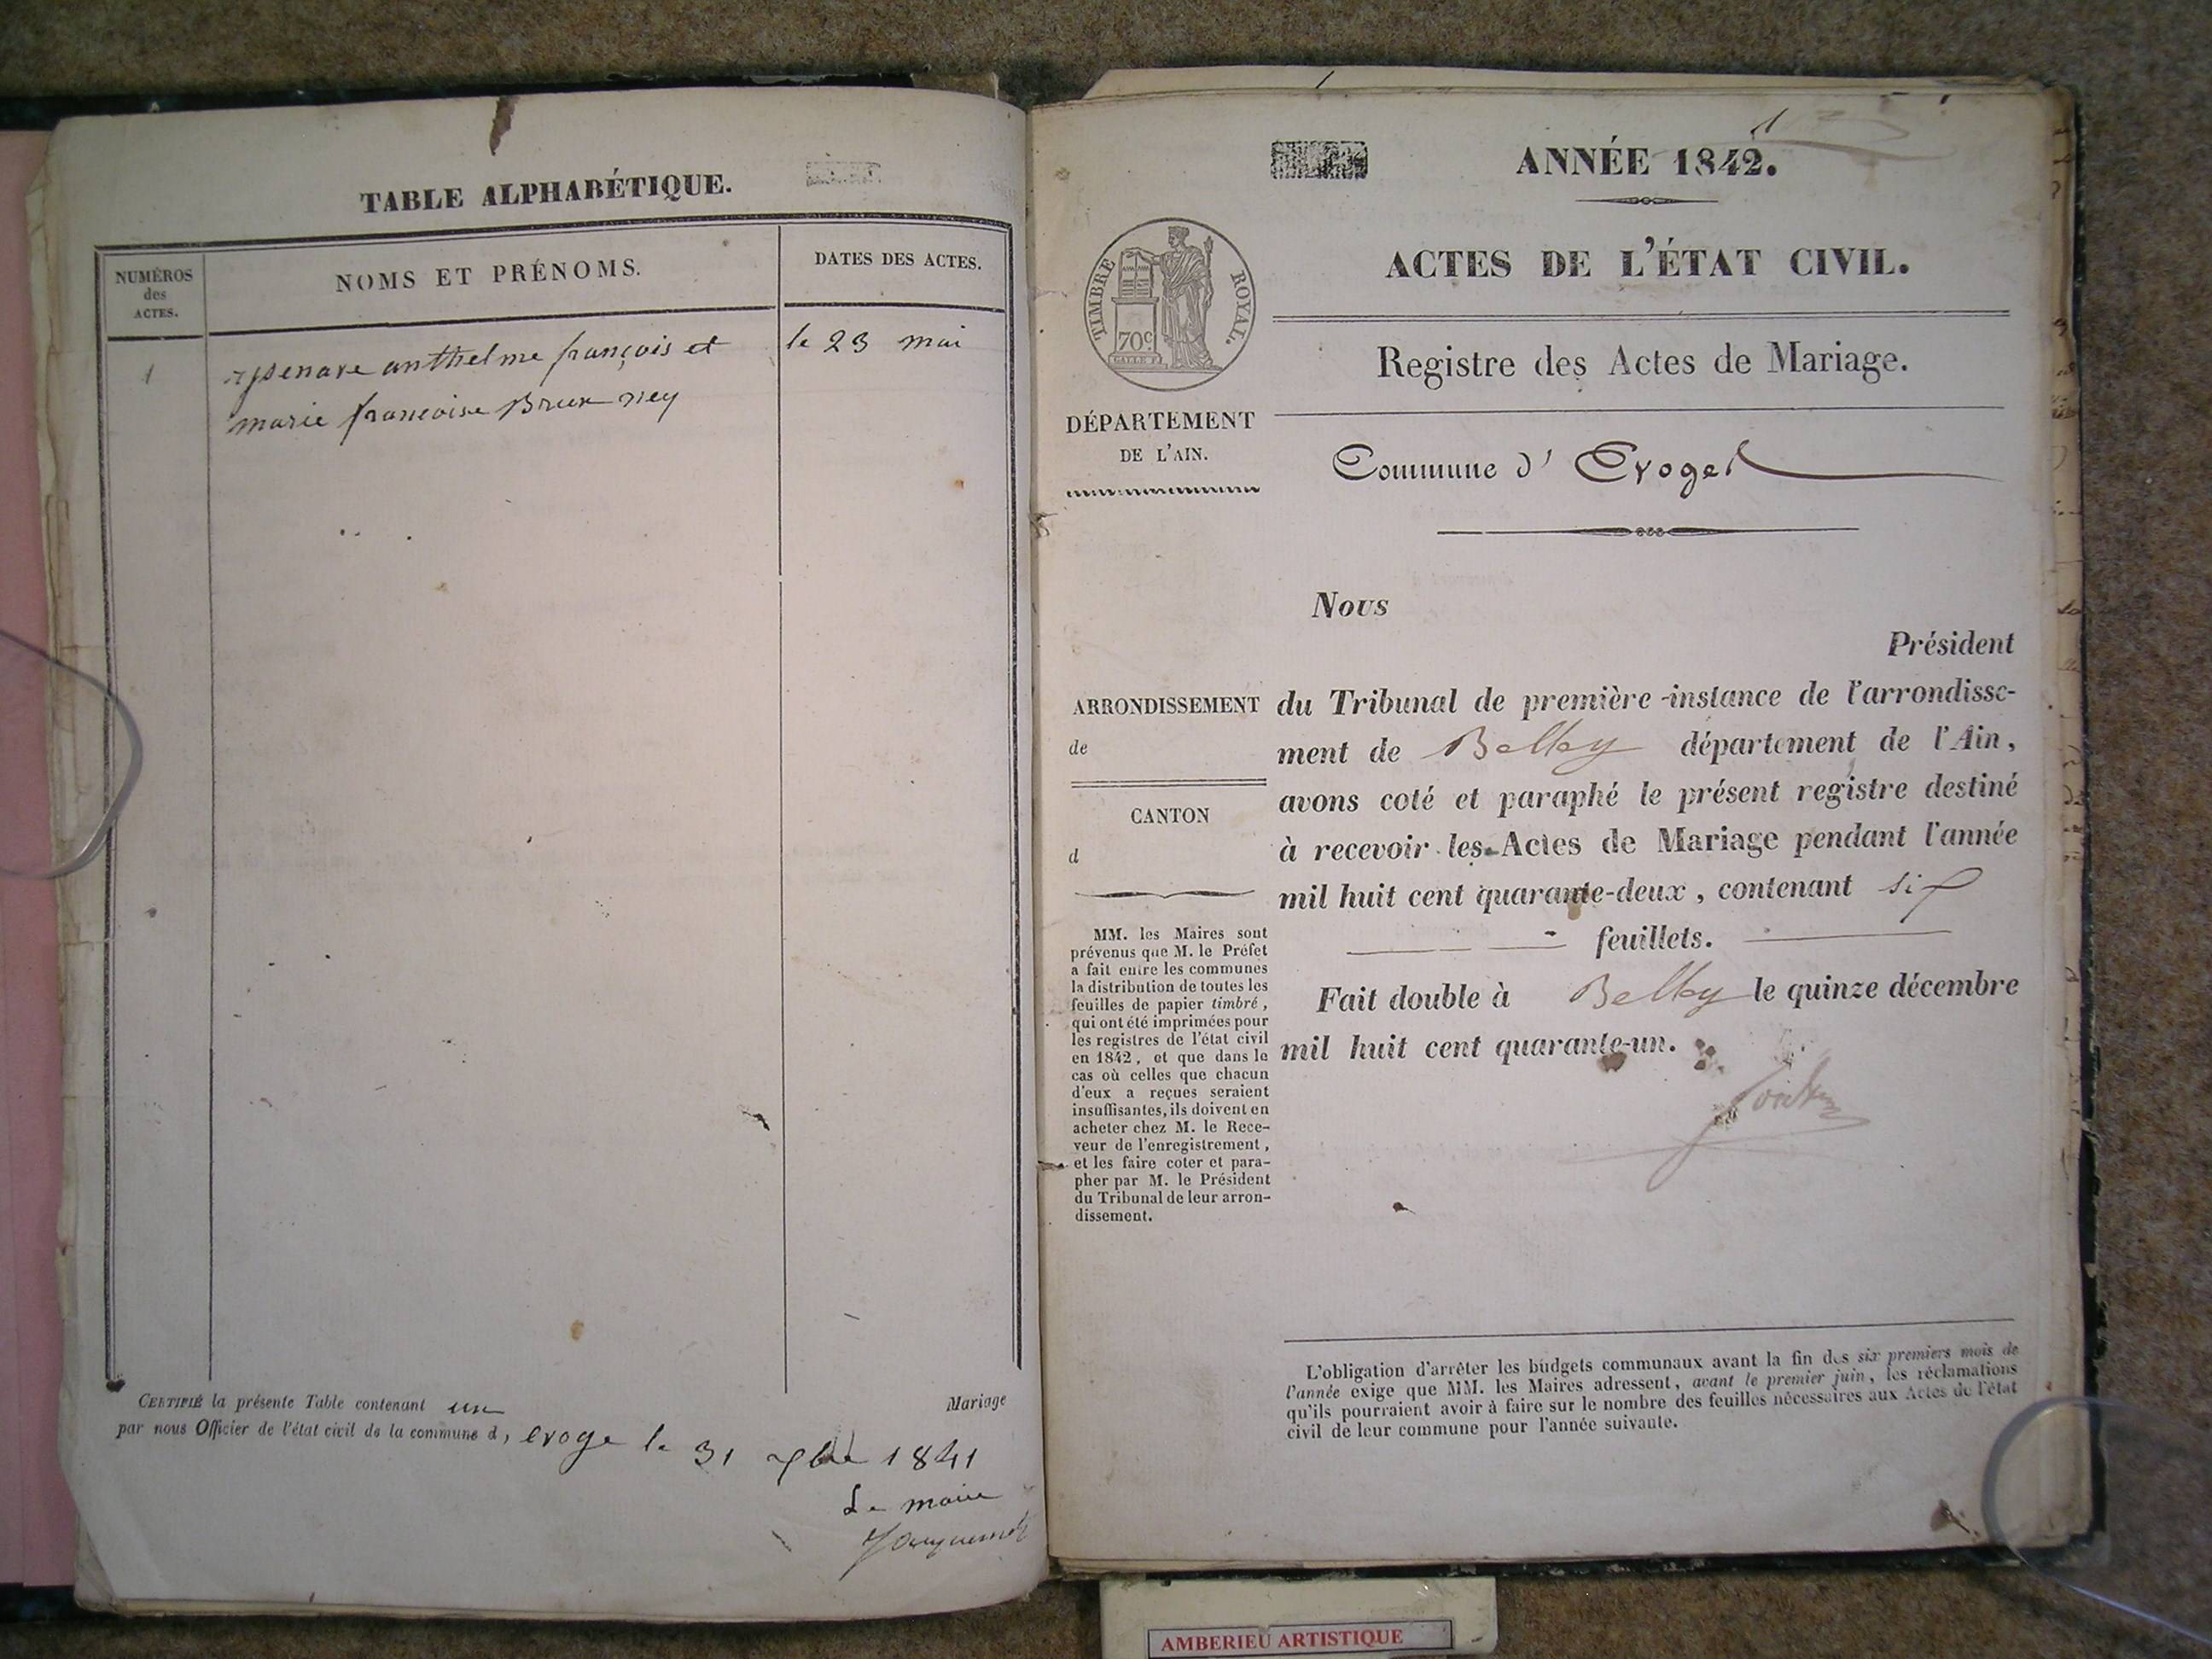 TABLE ALPHABÉTIQUE.
NUMÉROS
des
ACTES.
NOMS ET PRÉNOMS.
DATES DES ACTES.
1
anthelme françois et
le 23 mai
marie francoise Brun ney
CERTIFIÉ la présente Table contenant un
Mariage
par nous Officier de l'état civil de la commune d, evoge le 31 xbre 1841
Le maire
1
ANNÉE 1842.
ACTES DE L'ÉTAT CIVIL.
TIMBRE ROYAL.
70c.
Registre des Actes de Mariage.
DÉPARTEMENT
DE L'AIN.
Commune d' Evoges
Nous
Président
ARRONDISSEMENT
de
CANTON
d
du Tribunal de première instance de l'arrondisse-
ment de Belley département de l'Ain,
avons coté et paraphé le présent registre destiné
à recevoir les Actes de Mariage pendant l'année
mil huit cent quarante-deux, contenant six
feuillets.
Fait double à Belley le quinze décembre
mil huit cent quarante-un.
MM. les Maires sont
prévenus que M. le Préfet
a fait entre les communes
la distribution de toutes les
feuilles de papier timbré,
qui ont été imprimées pour
les registres de l'état civil
en 1842, et que dans le
cas où celles que chacun
d'eux a reçues seraient
insuffisantes, ils doivent en
acheter chez M. le Rece-
veur de l'enregistrement,
et les faire coter et para-
pher par M. le Président
du Tribunal de leur arron-
dissement.
L'obligation d'arrêter les budgets communaux avant la fin des six premiers mois de
l'année exige que MM. les Maires adressent, avant le premier juin, les réclamations
qu'ils pourraient avoir à faire sur le nombre des feuilles nécessaires aux Actes de l'état
civil de leur commune pour l'année suivante.
AMBERIEU ARTISTIQUE